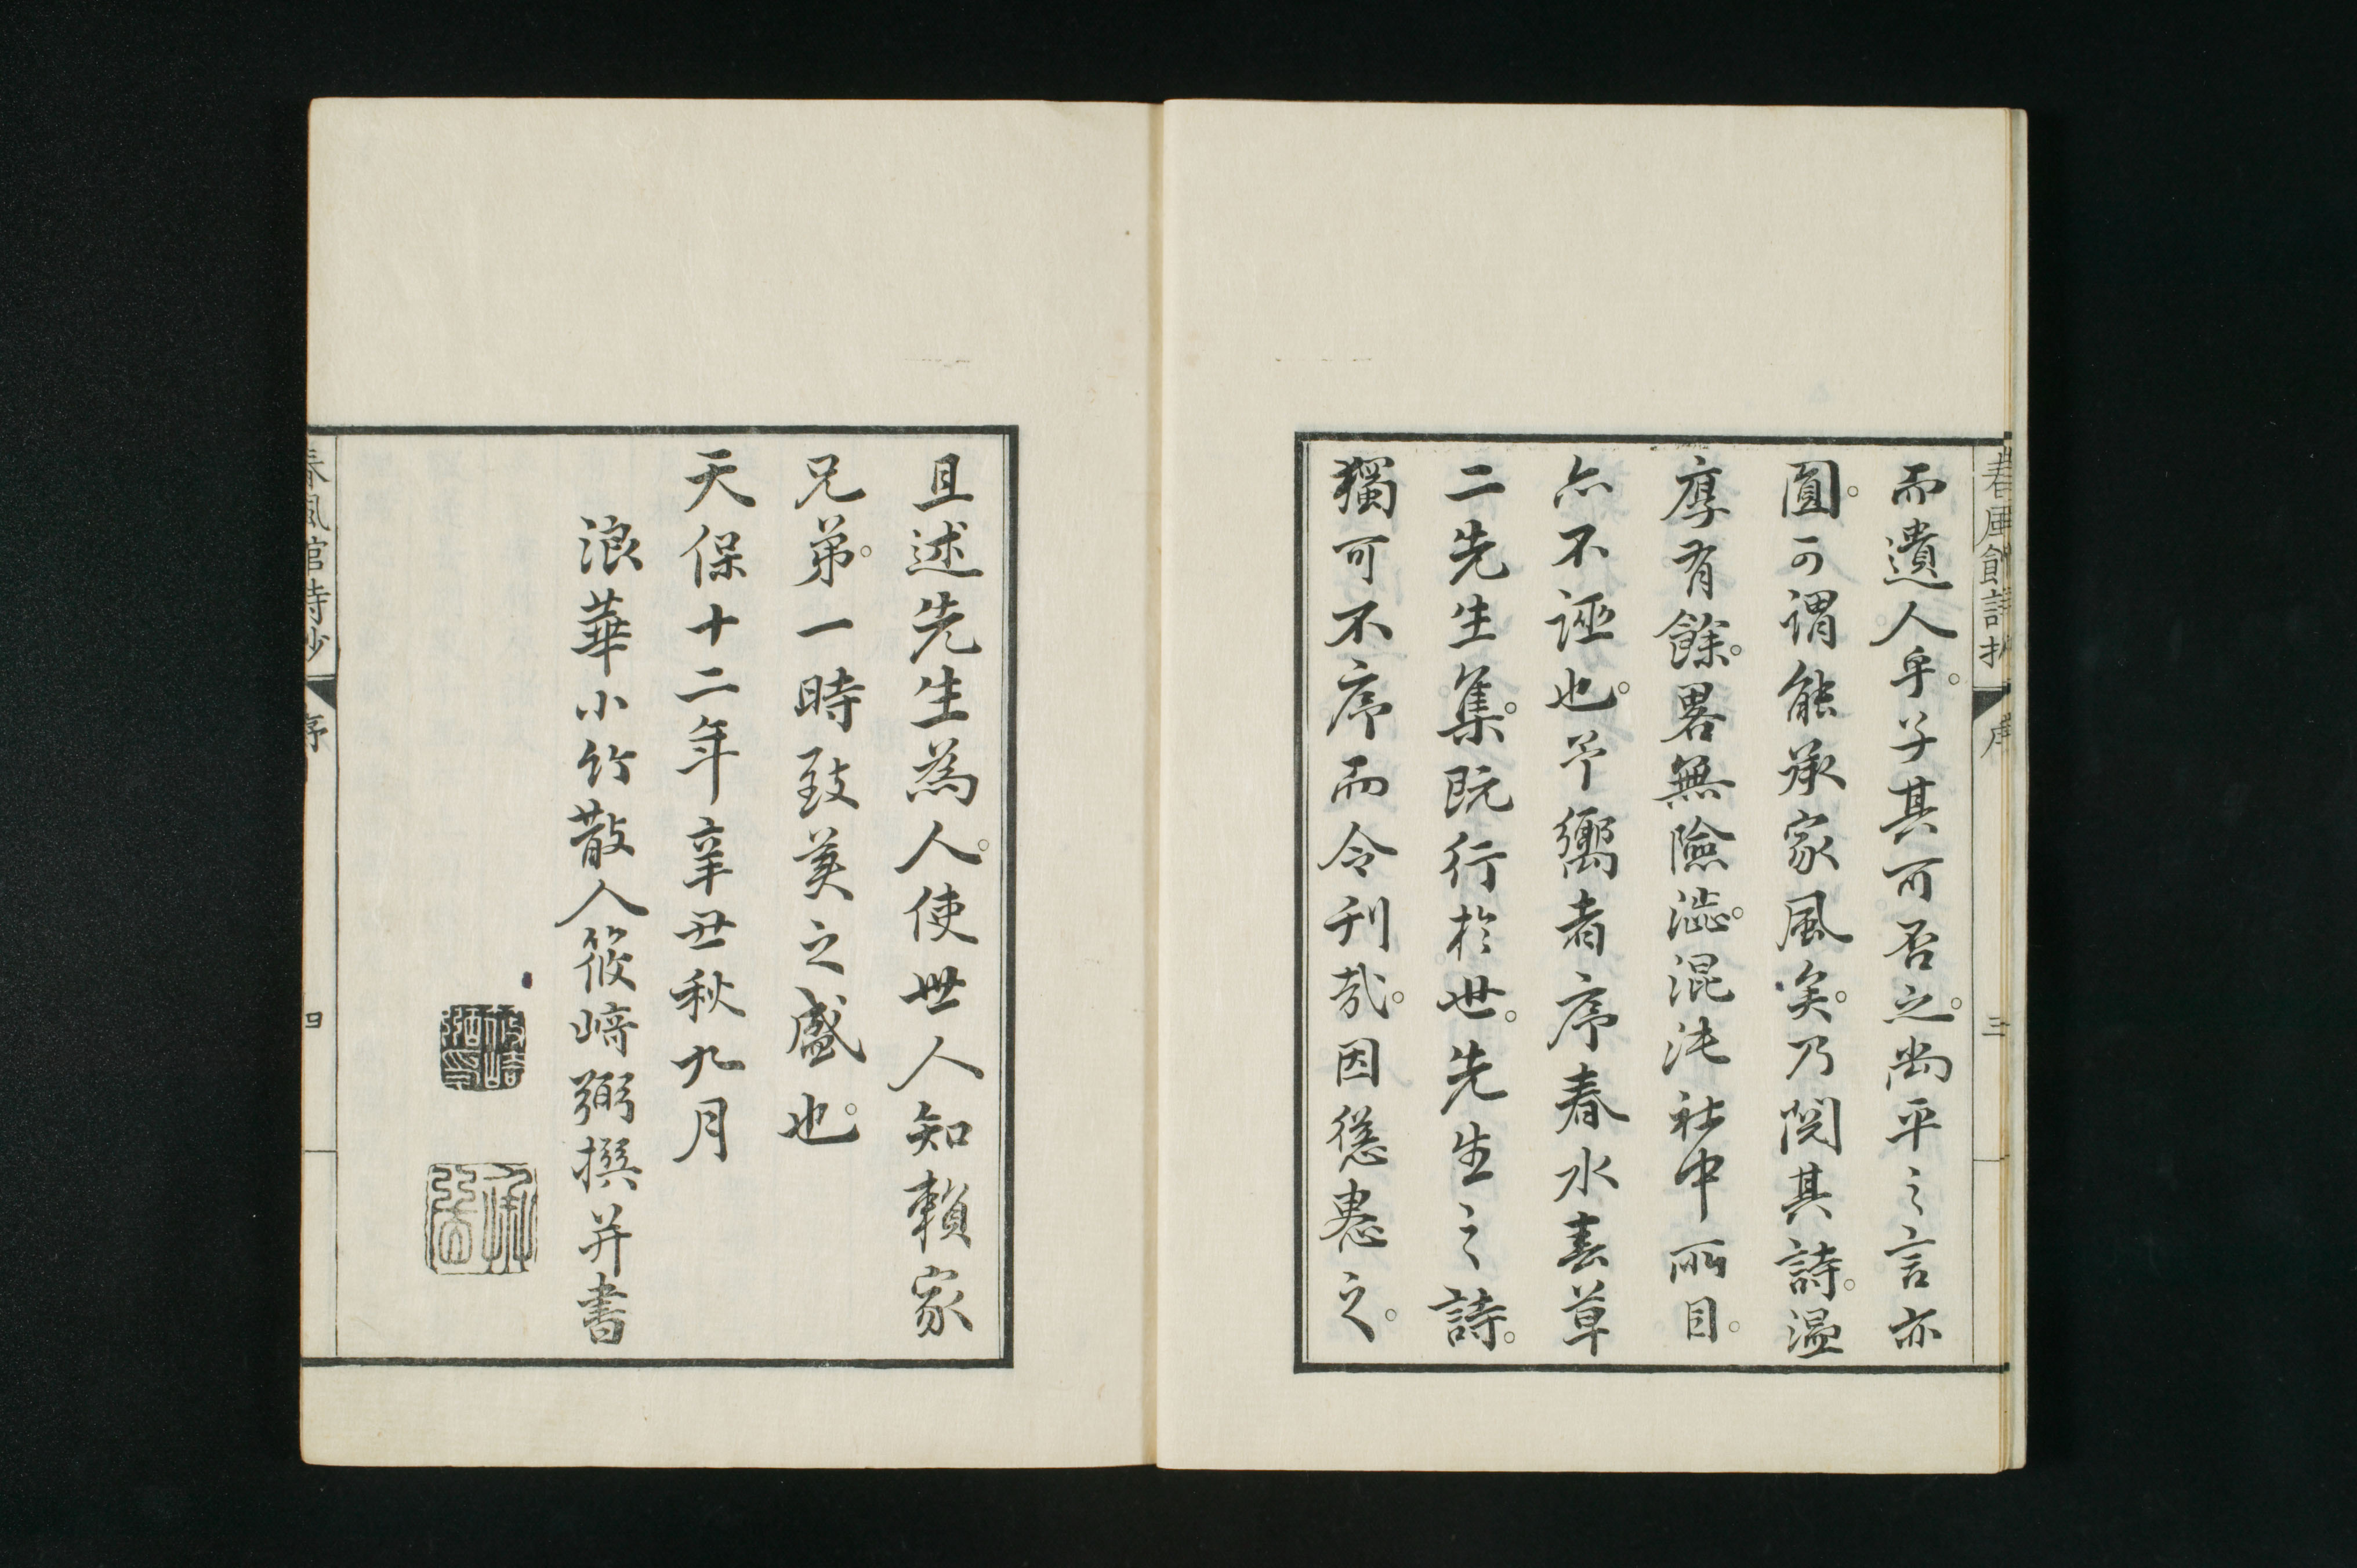 春風館詩抄 序 三
而遺人乎子其可否之尚平之言亦
圓可謂能承家風矣乃閱其詩溫
厚有餘畧無險澁混沌社中所目
亦不誣也予嚮者序春水春草
二先生集既行於世先生之詩
獨可不序而令刊哉因慫慂之
且述先生為人使世人知賴家
兄弟一時致美之盛也
天保十二年辛丑秋九月
浪華小竹散人筱﨑弼撰并書
春風館詩抄 序 四